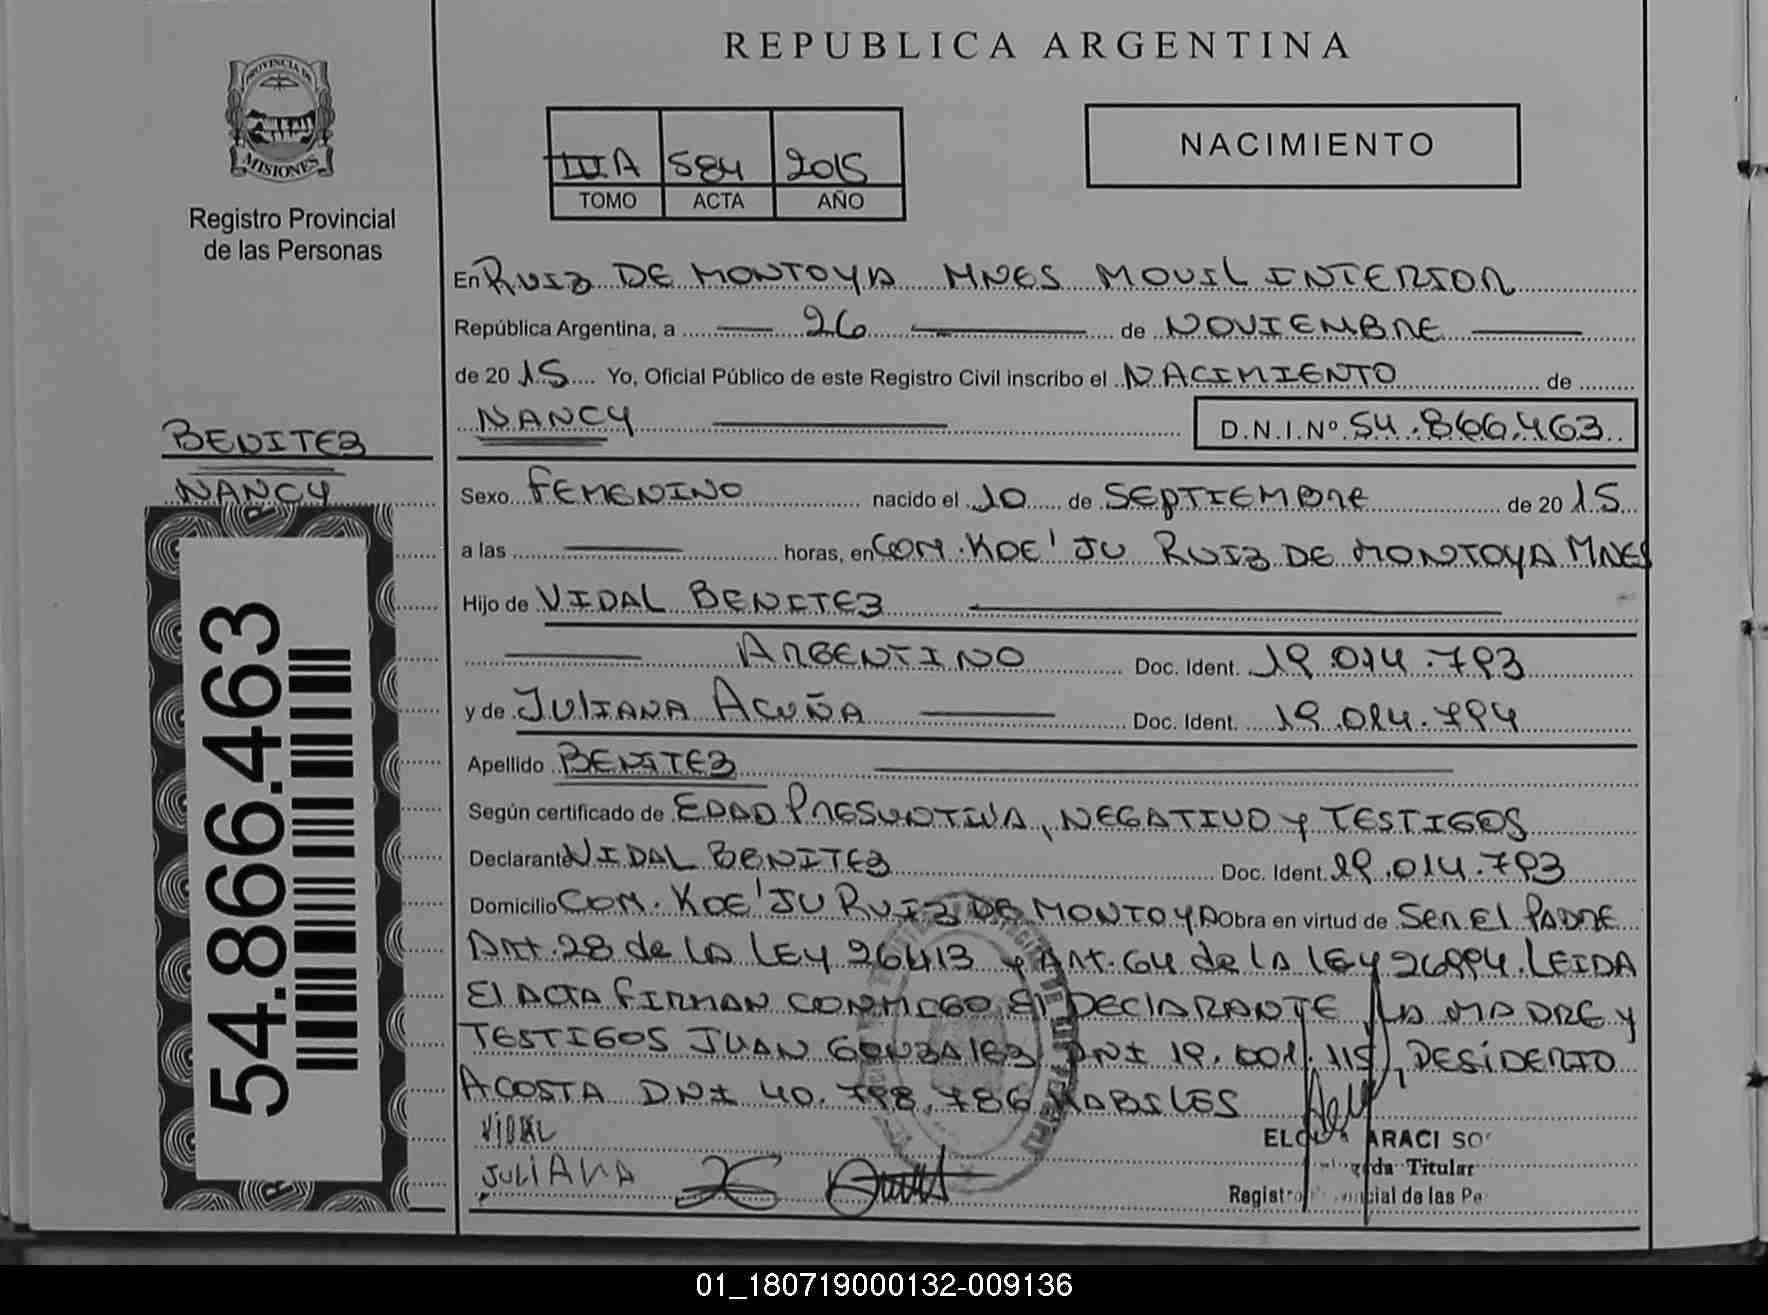 REPUBLICA ARGENTINA
PROVINCIA DE
MISIONES
Registro Provincial
de las Personas
IIIA 584 2015
TOMO ACTA AÑO
NACIMIENTO
En RUIZ DE MONTOYA MNES MOVIL INTERIOR
República Argentina, a 26 de NOVIEMBRE
de 2015 Yo, Oficial Público de este Registro Civil inscribo el NACIMIENTO de
NANCY D.N.I.Nº 54.866.463
BENITEZ
NANCY
54.866.463
Sexo FEMENINO nacido el 10 de SEPTIEMBRE de 2015
a las horas, en COM. KOE'JU RUIZ DE MONTOYA MNES
Hijo de VIDAL BENITEZ
ARGENTINO Doc. Ident. 19.014.793
y de JULIANA ACUÑA Doc. Ident. 19.014.794
Apellido BENITEZ
Según certificado de EDAD PRESUNTIVA, NEGATIVO y TESTIGOS
Declarante VIDAL BENITEZ Doc. Ident. 19.014.793
Domicilio COM. KOE'JU RUIZ DE MONTOYA Obra en virtud de SER El PADRE
ART. 28 de LA LEY 26413 y ART. 64 de LA LEY 26994. LEIDA
El ACTA FIRMAN CONMIGO El DECLARANTE, LA MADRE y
TESTIGOS JUAN GONZALEZ DNI 19.001.115, DESIDERIO
ACOSTA DNI 40.798.786 HABILES
VIDAL
JULIANA
ARACI
Titular
Registro de las Pe
01_180719000132-009136